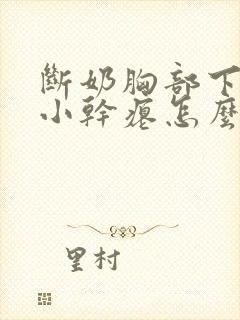 斷奶胸部下
小幹癟怎麼
里村